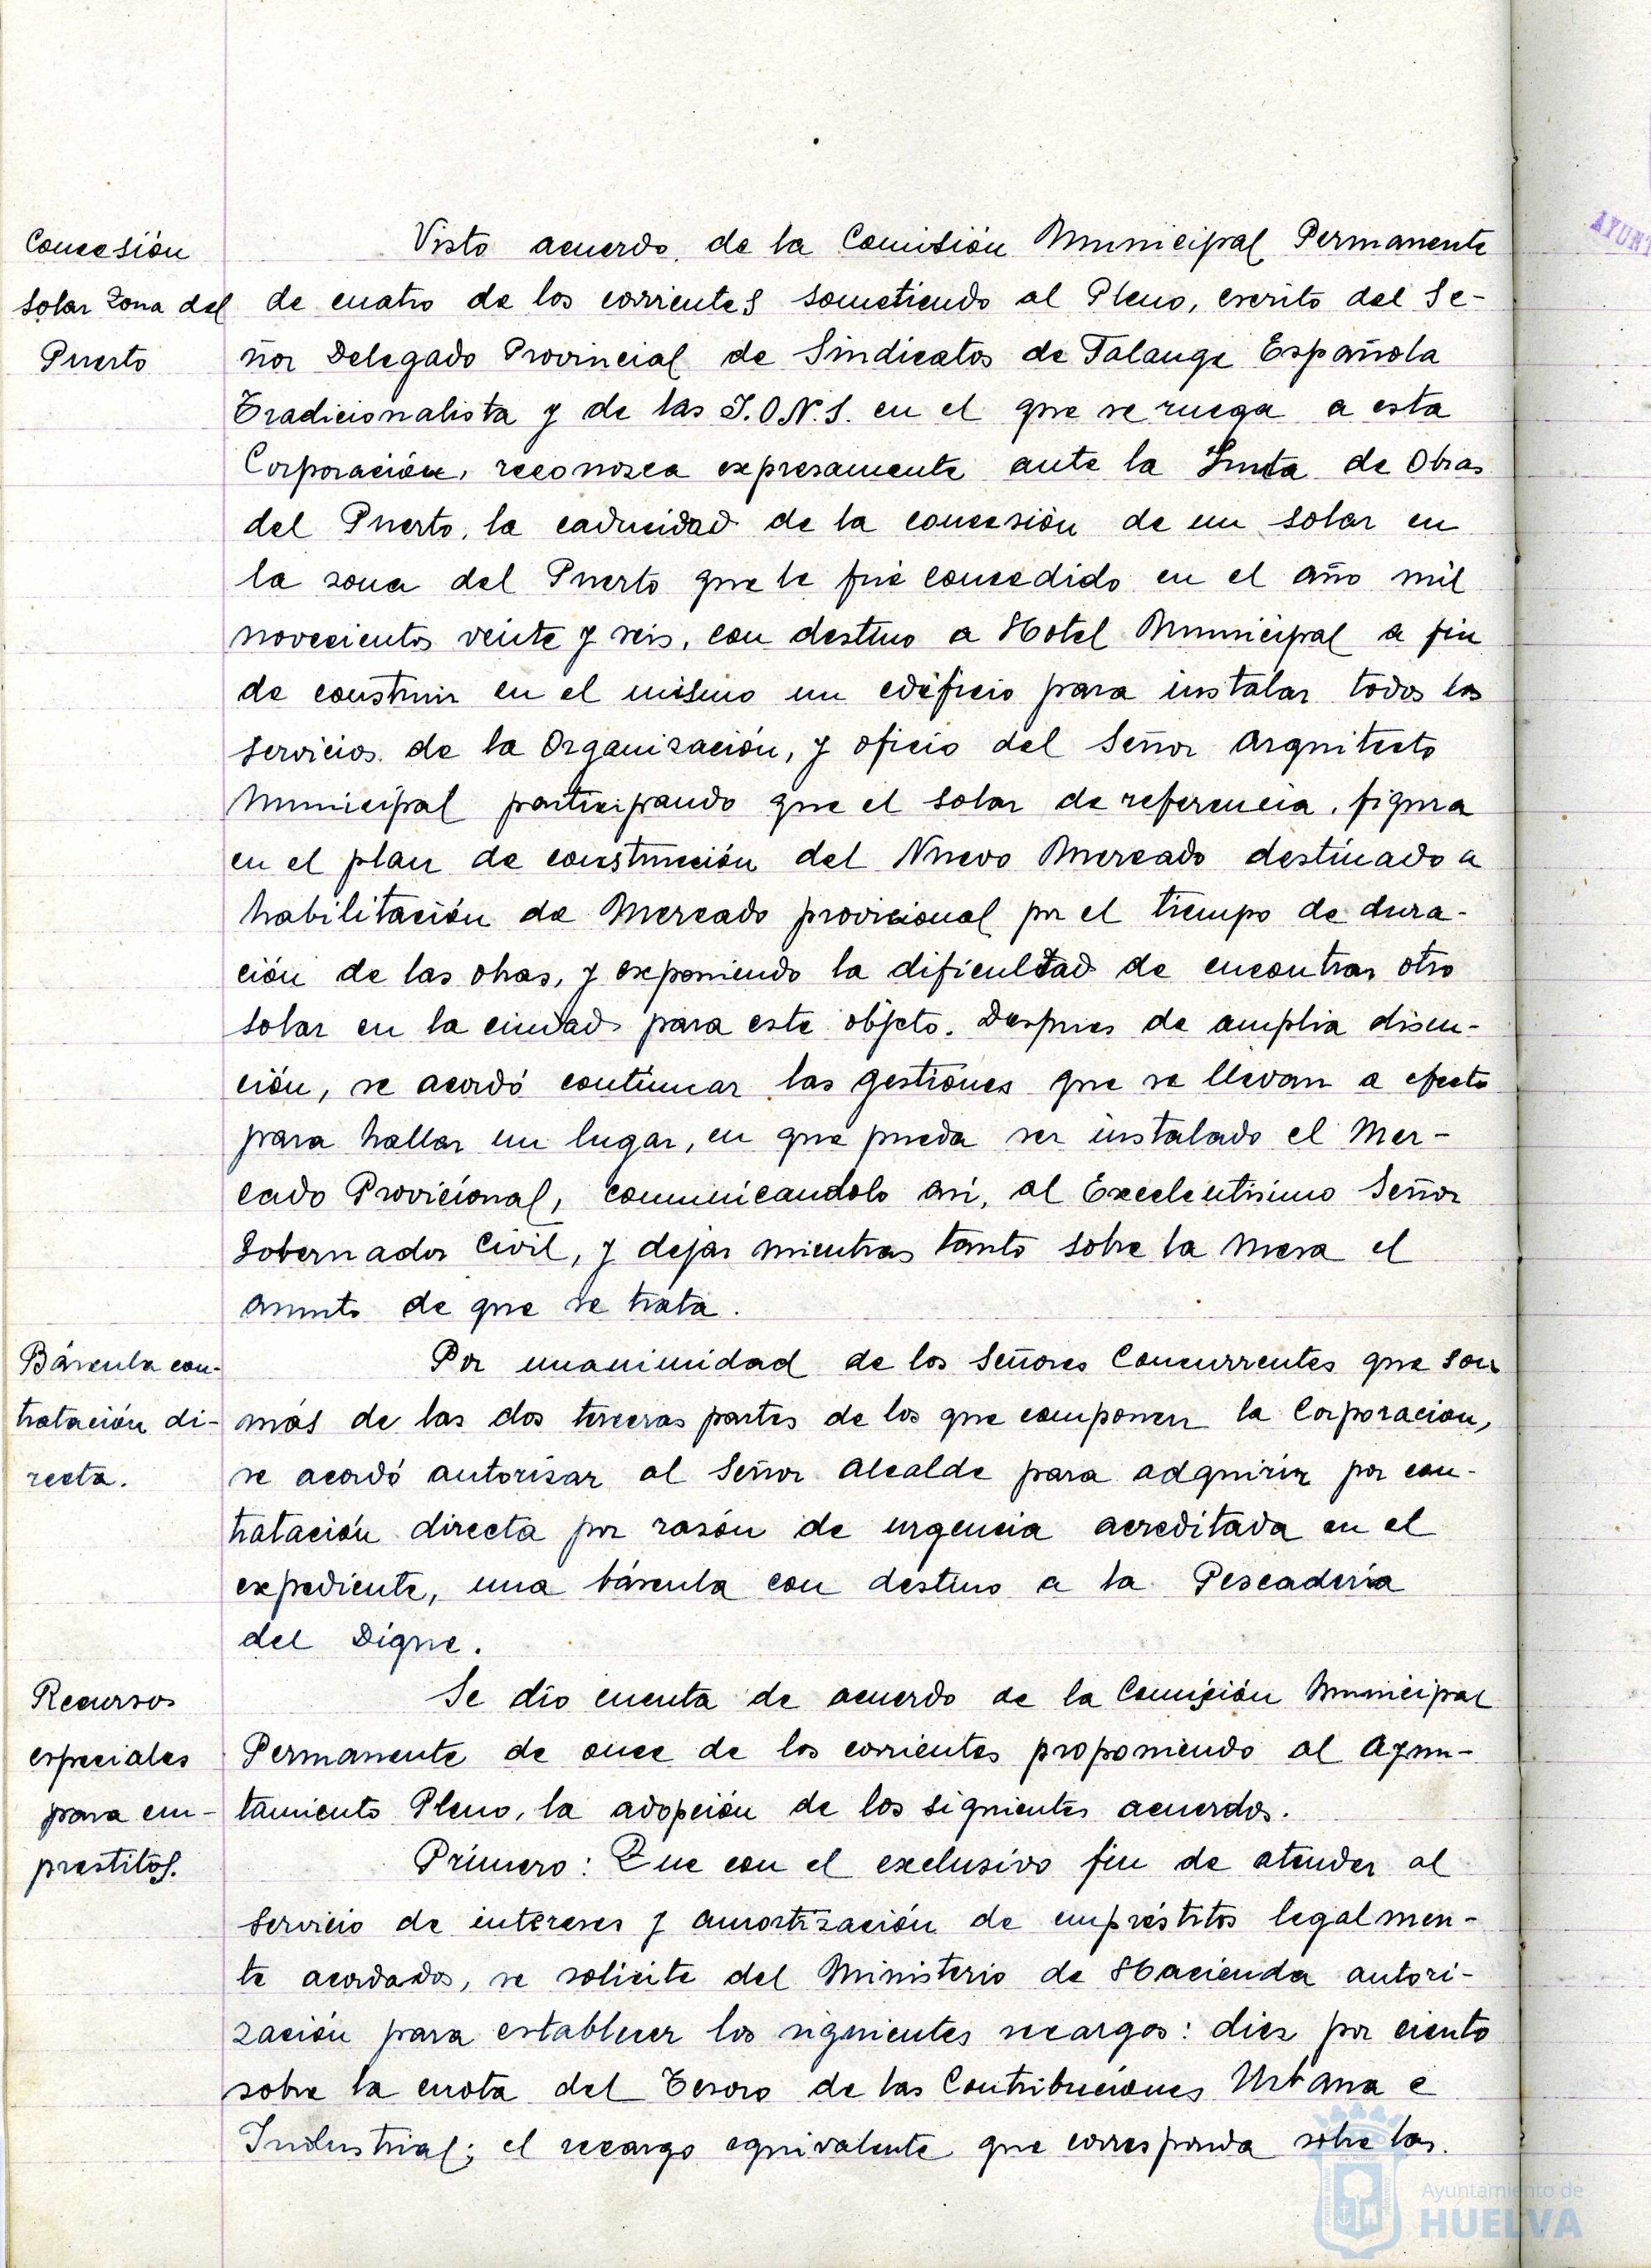 Concesión
Solar Zona del
Puerto
Visto acuerdo, de la Comisión Municipal Permanente
de cuatro de los corrientes sometiendo al Pleno, escrito del Se-
ñor Delegado Provincial de Sindicatos de Falange Española
Tradicionalista y de las J.O.N.S. en el que se ruega a esta
Corporación, reconozca expresamente ante la Junta de Obras
del Puerto, la caducidad de la concesión de un solar en
la zona del Puerto que le fué concedido en el año mil
novecientos veinte y seis, con destino a Hotel Municipal a fin
de construir en el mismo un edificio para instalar todos los
servicios de la Organización, y oficio del Señor Arquitecto
Municipal participando que el solar de referencia, figura
en el plan de construcción del Nuevo Mercado destinado a
habilitación de Mercado provicional por el tiempo de dura-
ción de las obras, y exponiendo la dificultad de encontrar otro
solar en la ciudad para este objeto. Despues de amplia discu-
ción, se acordó continuar las gestiones que se llevan a efecto
para hallar un lugar, en que pueda ser instalado el Mer-
cado Provicional, comunicandolo asi, al Excelentisimo Señor
Gobernador Civil, y dejar mientras tanto sobre la mesa el
asunto de que se trata.
Báscula con-
tratación di-
recta.
Por unanimidad de los Señores Concurrentes que son
más de las dos terceras partes de los que componen la Corporacion,
se acordó autorizar al Señor Alcalde para adquirir por con-
tratación directa por razón de urgencia acreditada en el
expediente, una báscula con destino a la Pescadería
del Dique.
Recursos
especiales
para em-
prestitos.
Se dio cuenta de acuerdo de la Comisión Municipal
Permanente de once de los corrientes proponiendo al Ayun-
tamiento Pleno, la adopción de los siguientes acuerdos.
Primero: Que con el exclusivo fin de atender al
servicio de intereses y amortización de empréstitos legalmen-
te acordados, se solicite del Ministerio de Hacienda autori-
zación para establecer los siguientes recargos: diez por ciento
sobre la cuota del Tesoro de las Contribuciones Urbana e
Industrial; el recargo equivalente que corresponda sobre las
AYUNT
Ayuntamiento de
HUELVA